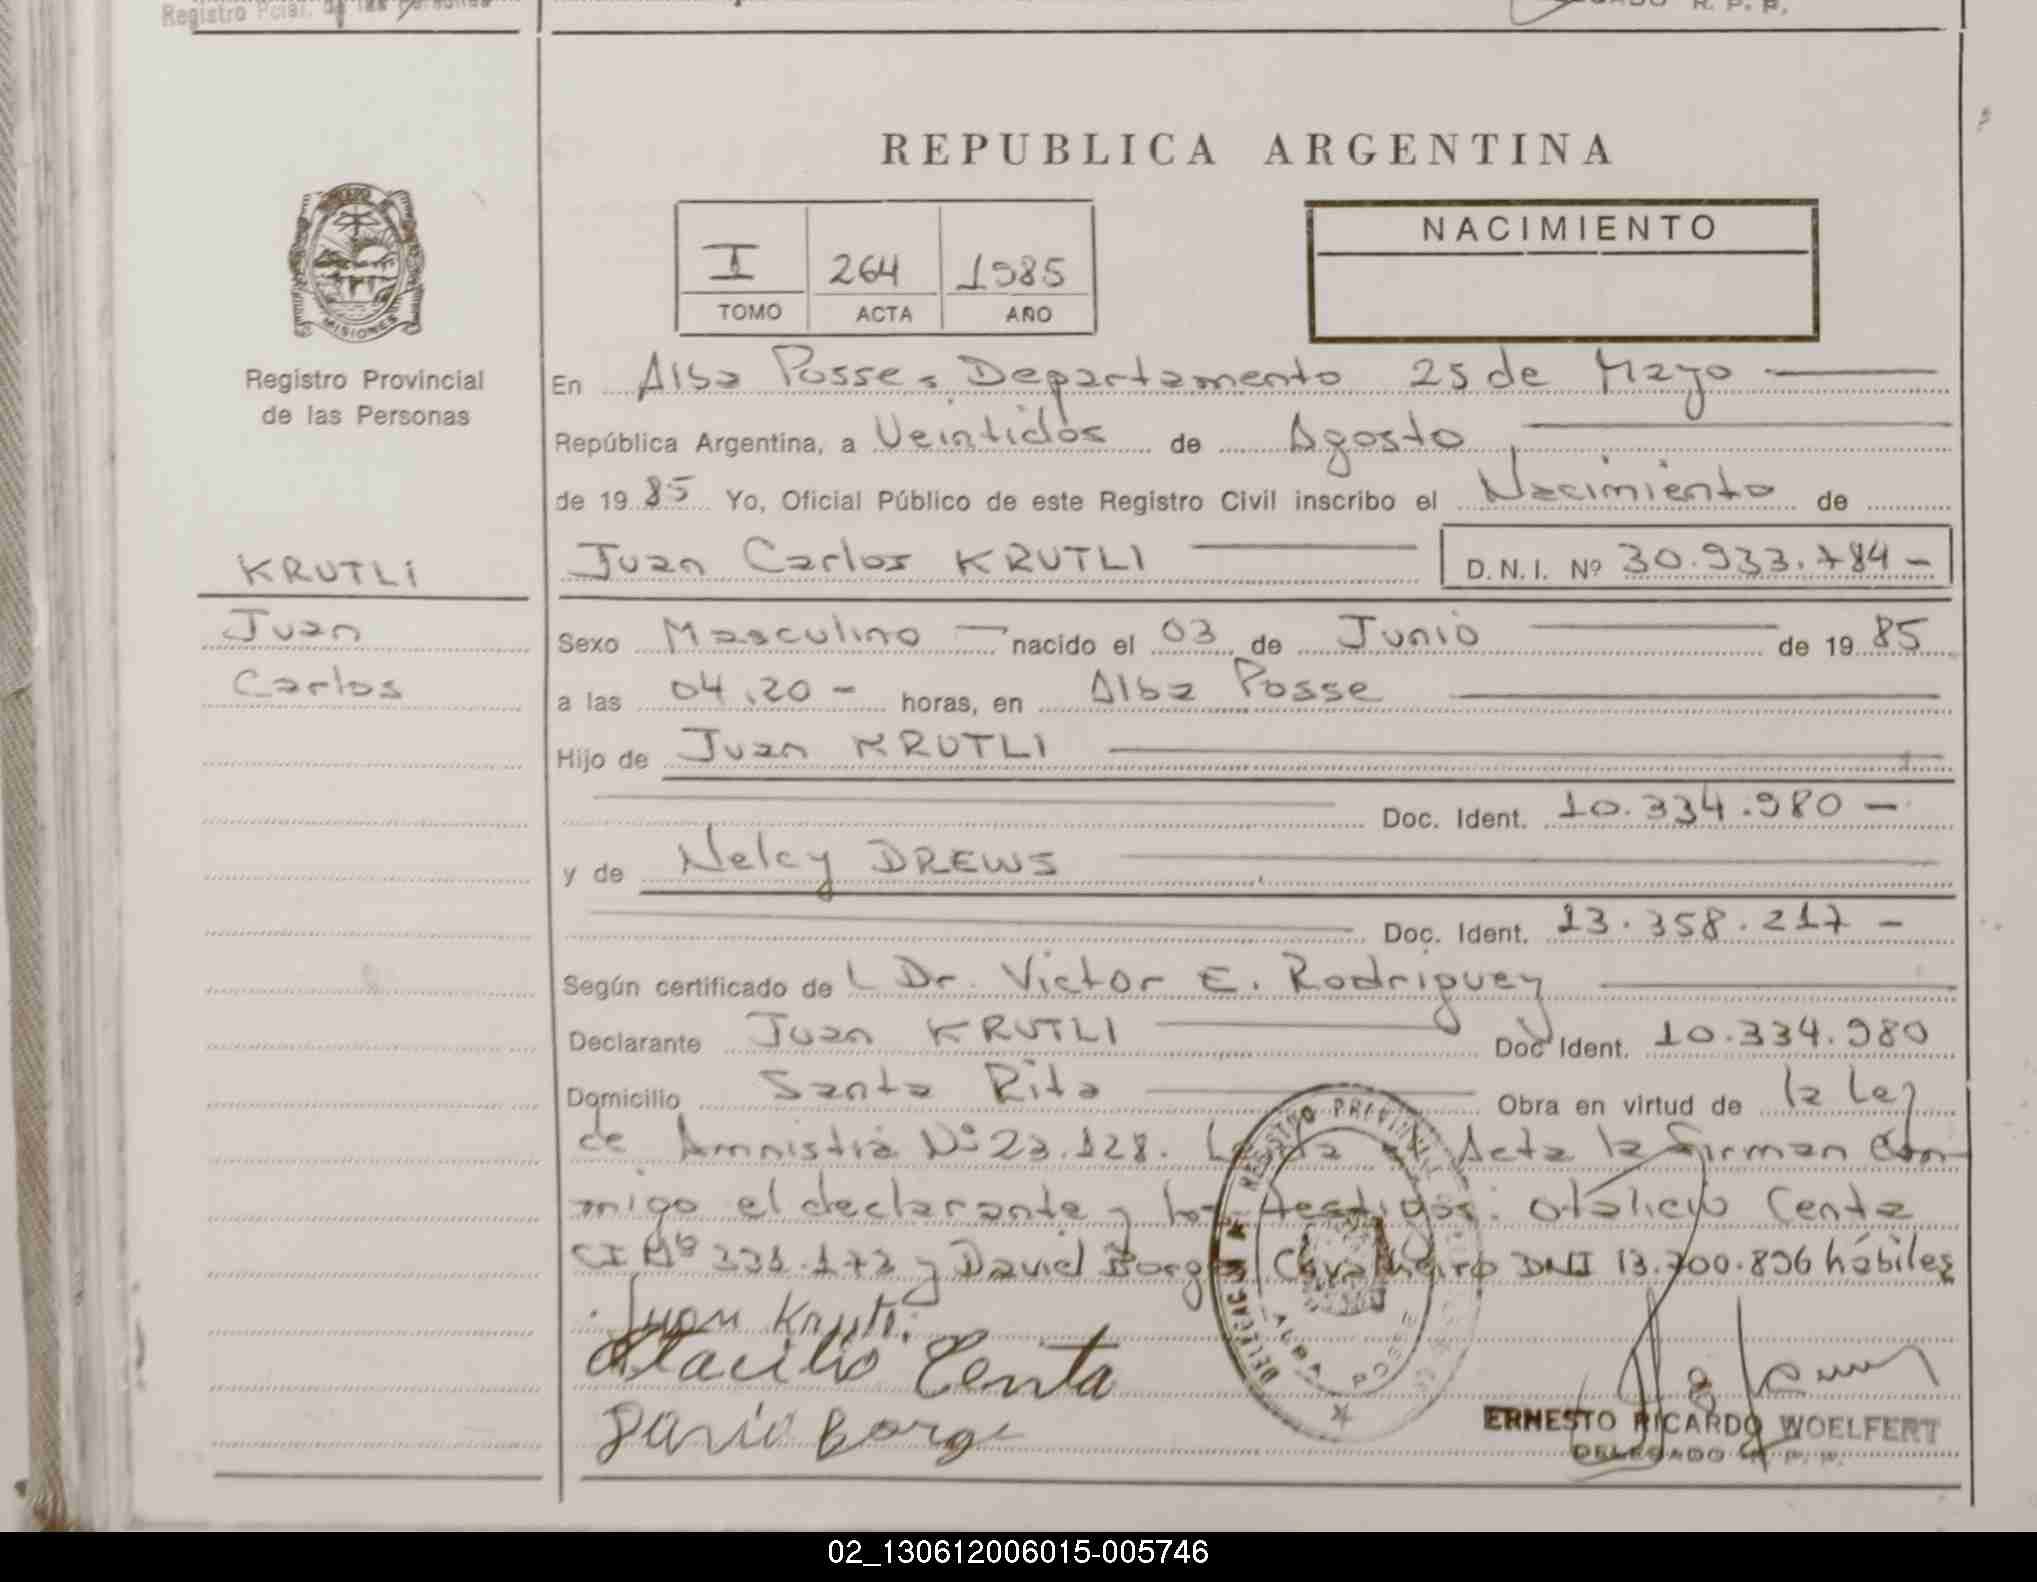 Registro Pcial. de las Personas
R. P. P.
REPUBLICA ARGENTINA
I 264 1985
TOMO ACTA AÑO
NACIMIENTO
MISIONES
Registro Provincial
de las Personas
KRUTLI
Juan
Carlos
En Alba Posse, Departamento 25 de Mayo
República Argentina, a Veintidós de Agosto
de 1985 Yo, Oficial Público de este Registro Civil inscribo el Nacimiento de
Juan Carlos KRUTLI D.N.I. Nº 30.933.784-
Sexo Masculino nacido el 03 de Junio de 1985
a las 04,20 - horas, en Alba Posse
Hijo de Juan KRUTLI
Doc. Ident. 10.334.980 -
y de Nelcy DREWS
Doc. Ident. 13.358.217 -
Según certificado de L Dr. Victor E. Rodriguez
Declarante Juan KRUTLI Doc Ident. 10.334.980
Domicilio Santa Rita Obra en virtud de la Ley
de Amnistia Nº 23.128. Leida el Acta la firman con-
migo el declarante y los testigos: Otalicio Centa
CI Nº 331.172 y David Borges Cavalheiro DNI 13.700.896 hábiles
Juan Krutli
Otacilio Centa
David Borge
REGISTRO PROVINCIAL
DELEGACION
ALBA POSSE
ERNESTO RICARDO WOELFERT
DELEGADO R. P. P.
02_130612006015-005746